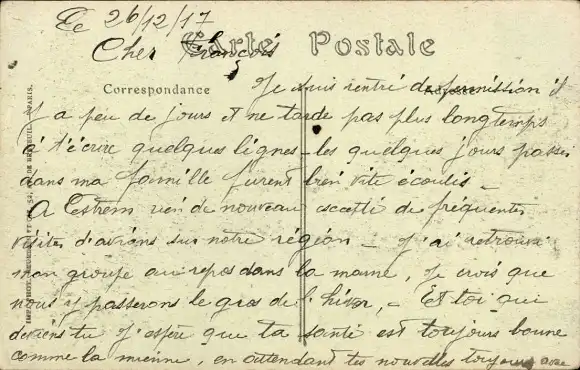 Le 26/12/17
Carte Postale
Cher François
Correspondance
Je suis rentré de permission il
y a peu de jours et ne tarde pas plus longtemps
à t'écrire quelques lignes - les quelques jours passés
dans ma famille furent bien vite écoulés -
A Estrem rien de nouveau excepté de fréquentes
visites d'avions sur notre région - J'ai retrouvé
mon groupe au repos dans la marne, Je crois que
nous y passerons le gros de l'hiver, - Et toi qui
deviens tu J'espère que ta santé est toujours bonne
comme la mienne, en attendant tes nouvelles toujours avec